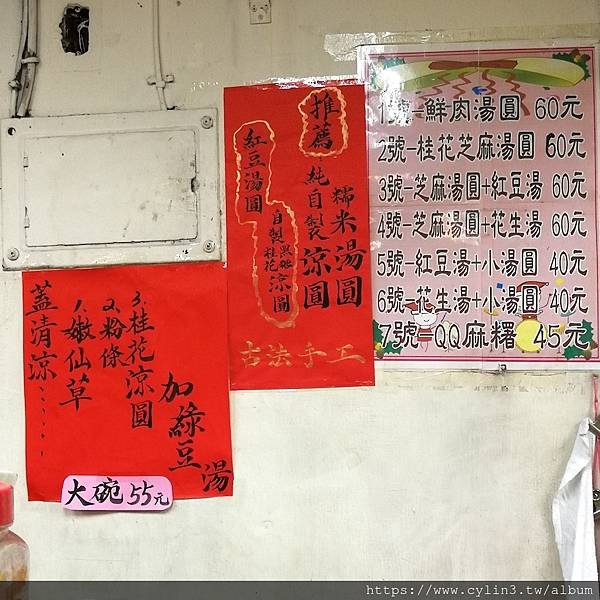 1號-鮮肉湯圓 60元
2號-桂花芝麻湯圓 60元
3號-芝麻湯圓+紅豆湯 60元
4號-芝麻湯圓+花生湯 60元
5號-紅豆湯+小湯圓 40元
6號-花生湯+小湯圓 40元
7號-QQ麻糬 45元
推薦
糯米湯圓
純自製涼圓
紅豆湯圓
自製黑糖桂花涼圓
古法手工
加綠豆湯
3.桂花涼圓
2.粉條
1.嫩仙草
蓋清涼······
大碗55元
https://www.cylin3.tw/album